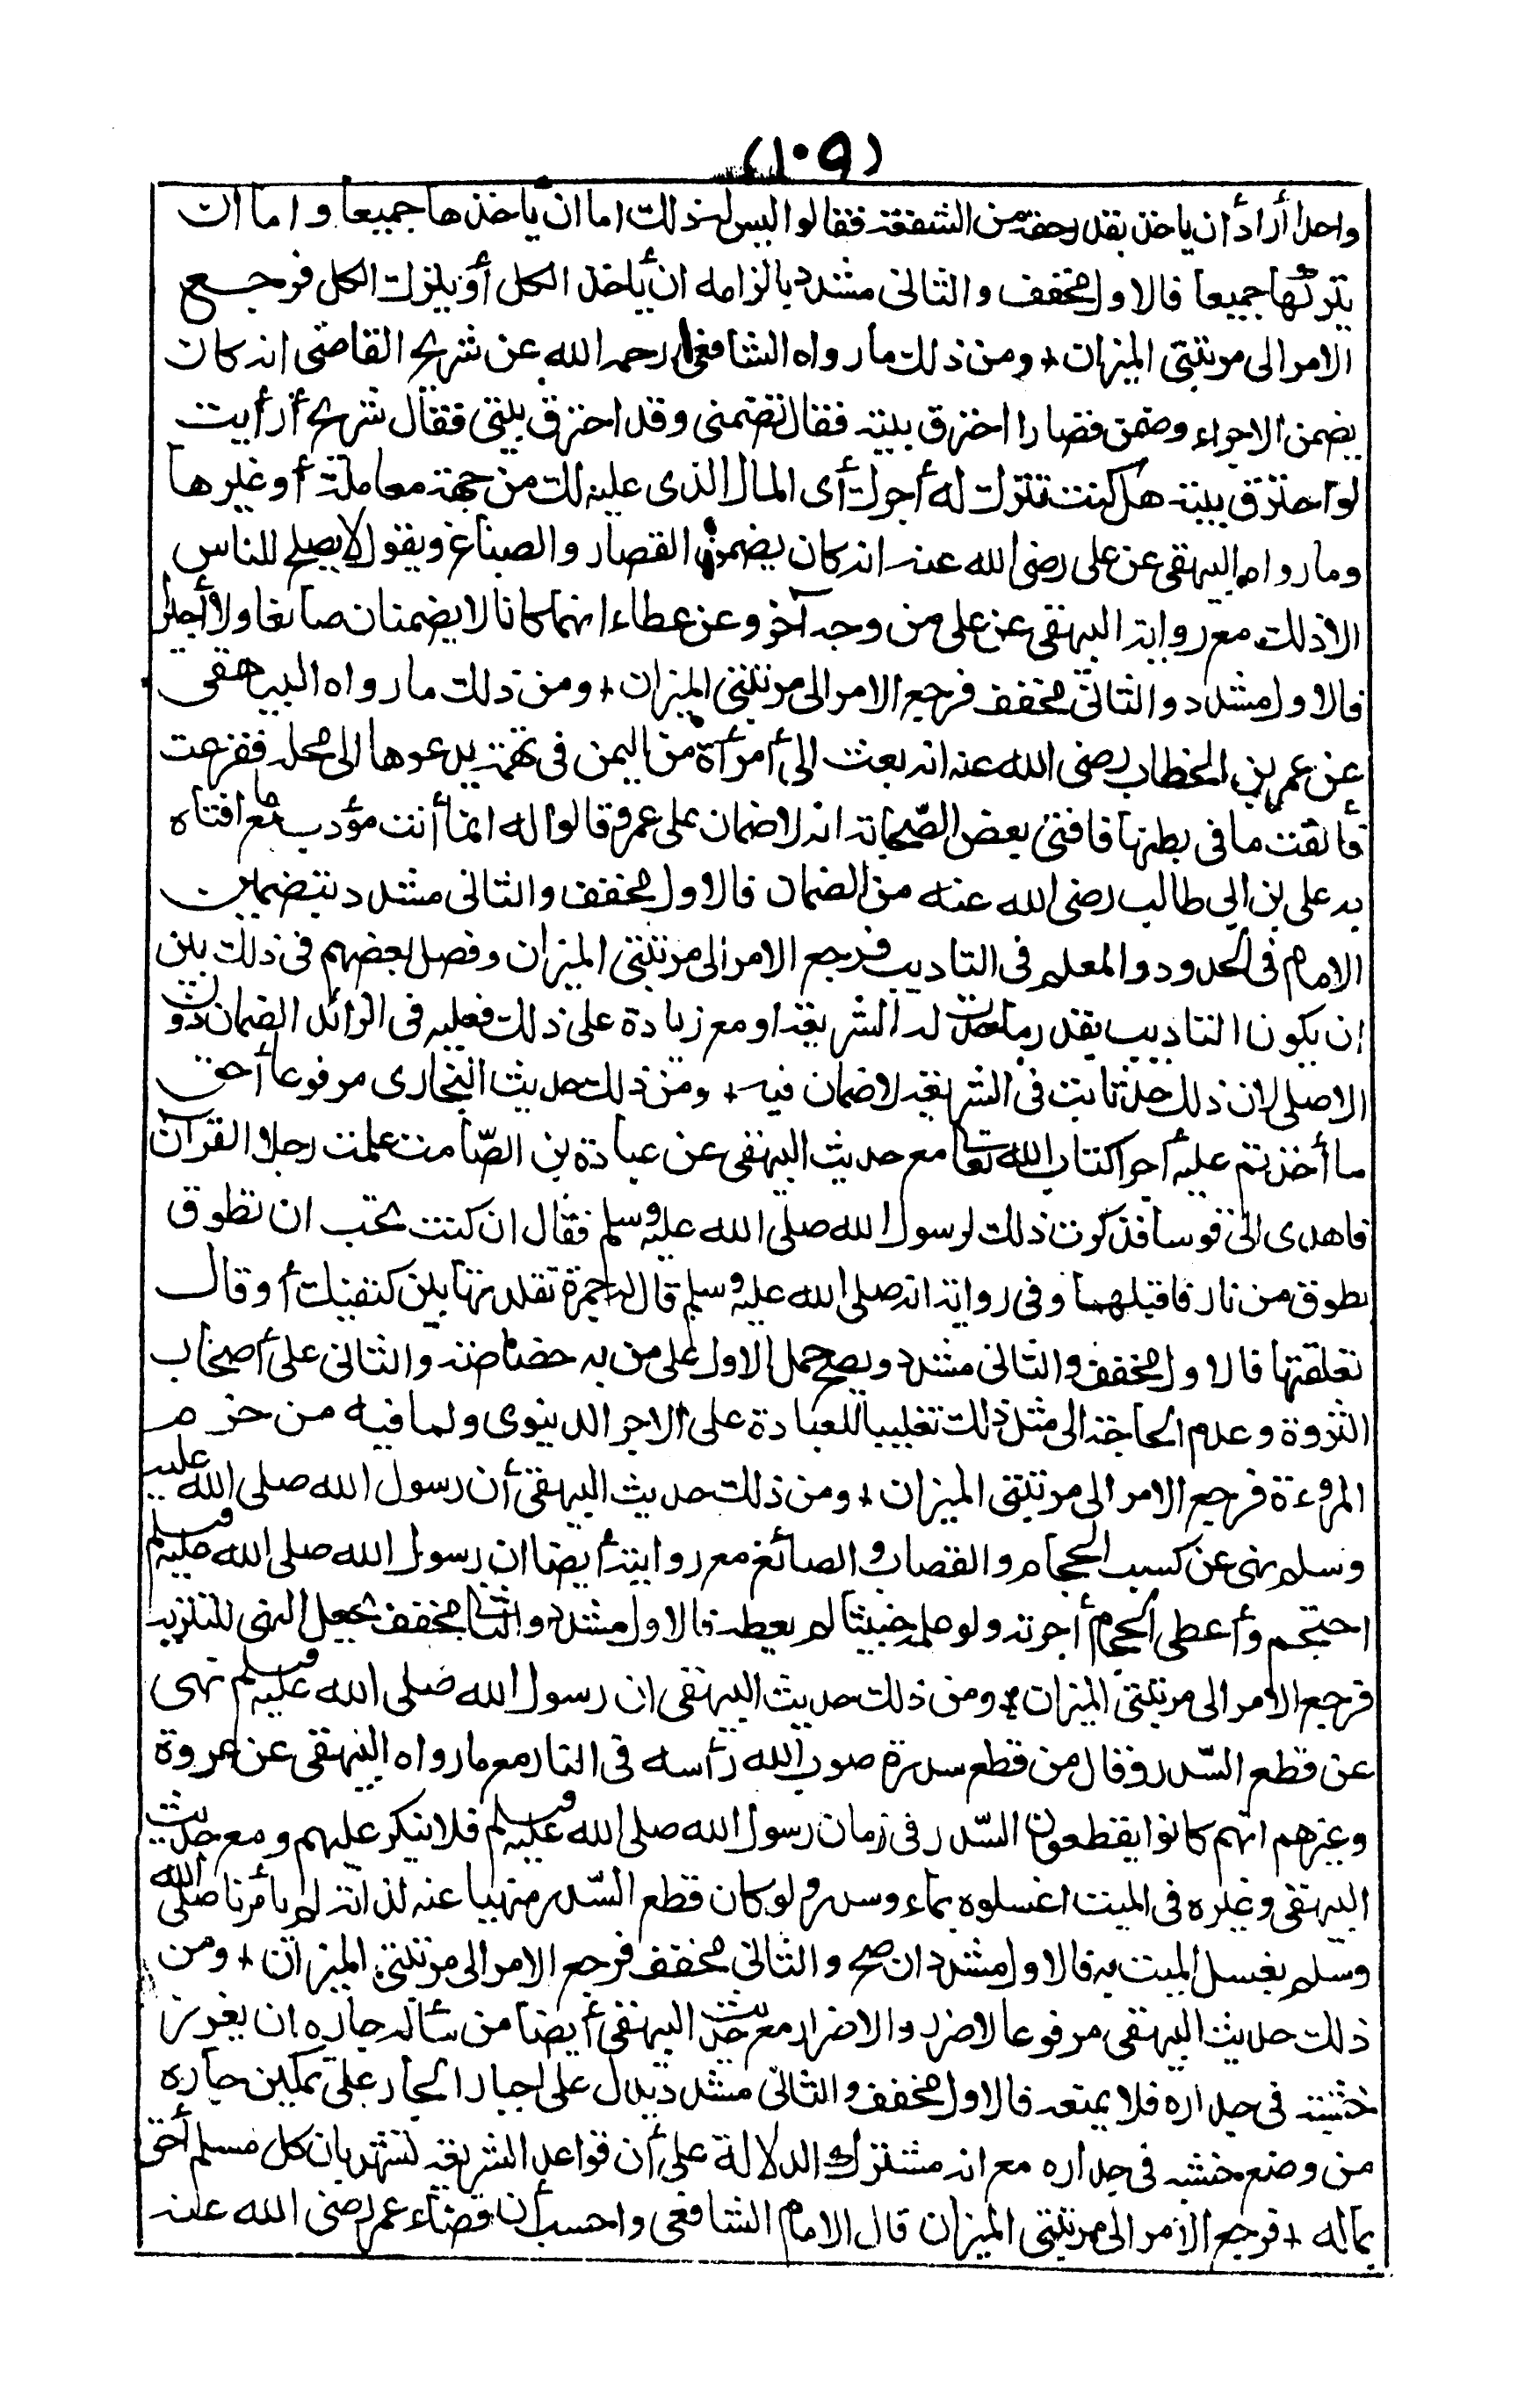 (١٠٩)
واحدا أراد أن ياخذ بقدر حقه من الشفعة فقالوا ليس له ذلك اما ان يأخذها جميعا واما ان
يتركها جميعا فالاول مخفف والثانى مشدد بالزامه ان يأخذ الكل أو يترك الكل فرجع
الامر الى مرتبتى الميزان + ومن ذلك ما رواه الشافعى رحمه الله عن شريح القاضى انه كان
يضمن الاجراء وضمن قصارا احترق بيته فقال تضمنى وقد احترق بيتى فقال شريح أرأيت
لو احترق بيته هل كنت تترك له أجرك أى المال الذى عليه لك من جهة معاملة أو غيرها
وما رواه البيهقى عن على رضى الله عنه انه كان يضمن القصار والصباغ ويقول لا يصلح للناس
الا ذلك مع رواية البيهقى عن على من وجه آخر وعن عطاء انهما كانا لا يضمنان صانعا ولا أجيرا
فالاول مشدد والثانى مخفف فرجع الامر الى مرتبتى الميزان + ومن ذلك ما رواه البيهقى
عن عمر بن الخطاب رضى الله عنه انه بعث الى أمرأة من اليمن فى تهمة يدعوها الى محله ففزعت
فألقت ما فى بطنها فافتى بعض الصحابة انه لا ضمان على عمر وقالوا له انما أنت مؤدب مع ما افتاه
به على بن ابي طالب رضى الله عنه من الضمان فالاول مخفف والثانى مشدد بتضمين
الامام فى الحدود والمعلم فى التاديب فرجع الامر الى مرتبتى الميزان وفصل بعضهم فى ذلك بين
ان يكون التاديب بقدر ما حدت له الشريعة او مع زيادة على ذلك فعليه فى الزائد الضمان دون
الاصلى لان ذلك حد ثابت فى الشريعة لا ضمان فيه + ومن ذلك حديث البخارى مرفوعا أحق
ما أخذتم عليه أجرا كتاب الله تعا مع حديث البيهقى عن عبادة بن الصّامت علمت رجلا القرآن
فاهدى الىّ قوسا فذكرت ذلك لرسول الله صلى الله عليه وسلم فقال ان كنت تحب ان تطوق
بطوق من نار فاقبلهما وفى رواية انه صلى الله عليه وسلم قال له جمرة تقلدتها بين كتفيك أو قال
تعلقتها فالاول مخفف والثانى مشدد ويصح حمل الاول على من به خصاصة والثانى على أصحاب
الثروة وعدم الحاجة الى مثل ذلك تغليبا للعبادة على الاجر الدينوى ولما فيه من خرم
المروءة فرجع الامر الى مرتبتى الميزان + ومن ذلك حديث البيهقى أن رسول الله صلى الله عليه
وسلم نهى عن كسب الحجام والقصاب والصائغ مع روايته أيضا ان رسول الله صلى الله عليه وسلم
احتجم وأعطى الحجام أجرته ولو علمه خبيثا لم يعطه فالاول مشدد والثانى مخفف بجعل النهى للتنزيه
فرجع الامر الى مرتبتى الميزان + ومن ذلك حديث البيهقى ان رسول الله صلى الله عليه وسلم نهى
عن قطع السّدر وقال من قطع سدرة صوب الله رأسه فى النار مع ما رواه البيهقى عن عروة
وغيرهم انهم كانوا يقطعون السّدر فى زمان رسول الله صلى الله عليه وسلم فلا ينكر عليهم ومع حديث
البيهقى وغيره فى الميت اغسلوه بماء وسدر ولو كان قطع السّدر منهيا عنه لذاته لم يأمرنا صلى الله
وسلم بغسل الميت به فالاول مشدد ان صح والثانى مخفف فرجع الامر الى مرتبتى الميزان + ومن
ذلك حديث البيهقى مرفوعا لا ضرر والا ضرار مع حديث البيهقى أيضا من سأله جاره ان يغرز
خشبته فى جداره فلا يمنعه فالاول مخفف والثانى مشدد يدل على اجبار الجار على تمكين جاره
من وضع خشبه فى جداره مع انه مشترك الدلالة على أن قواعد الشريعة تشهد بان كل مسلم أحق
بماله + فرجع الامر الى مرتبتى الميزان قال الامام الشافعى واحسب أن قضاء عمر رضى الله عنه